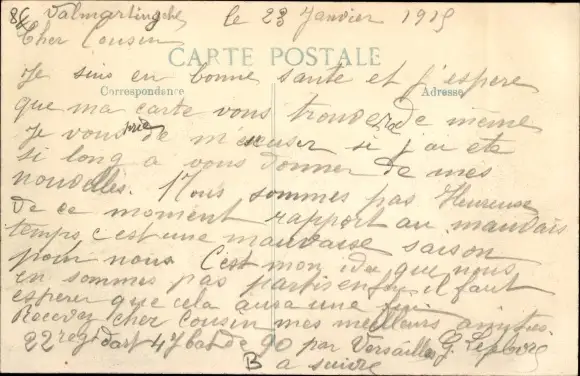 Valmartinghe, le 23 Janvier 1915
Cher Cousin
CARTE POSTALE
Je suis en bonne santé et j'espere
Correspondance Adresse
que ma carte vous trouvera de même
Je vous prie de m'excuser si j'ai ete
si long a vous donner de mes
nouvelles. Nous sommes pas Heureuse
de ce moment rapport au mauvais
temps c'est une mauvaise saison
pour nous C'est mon idee que nous
en sommes pas partis enfin il faut
esperer que cela aura une fin
Recevez cher Cousin mes meilleurs amities
22 regt dart 47 bat de 90 par Versailles G.
B a suivre